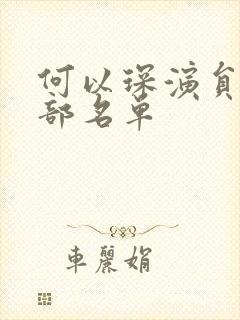 何以琛演員
部名單
車麗娟